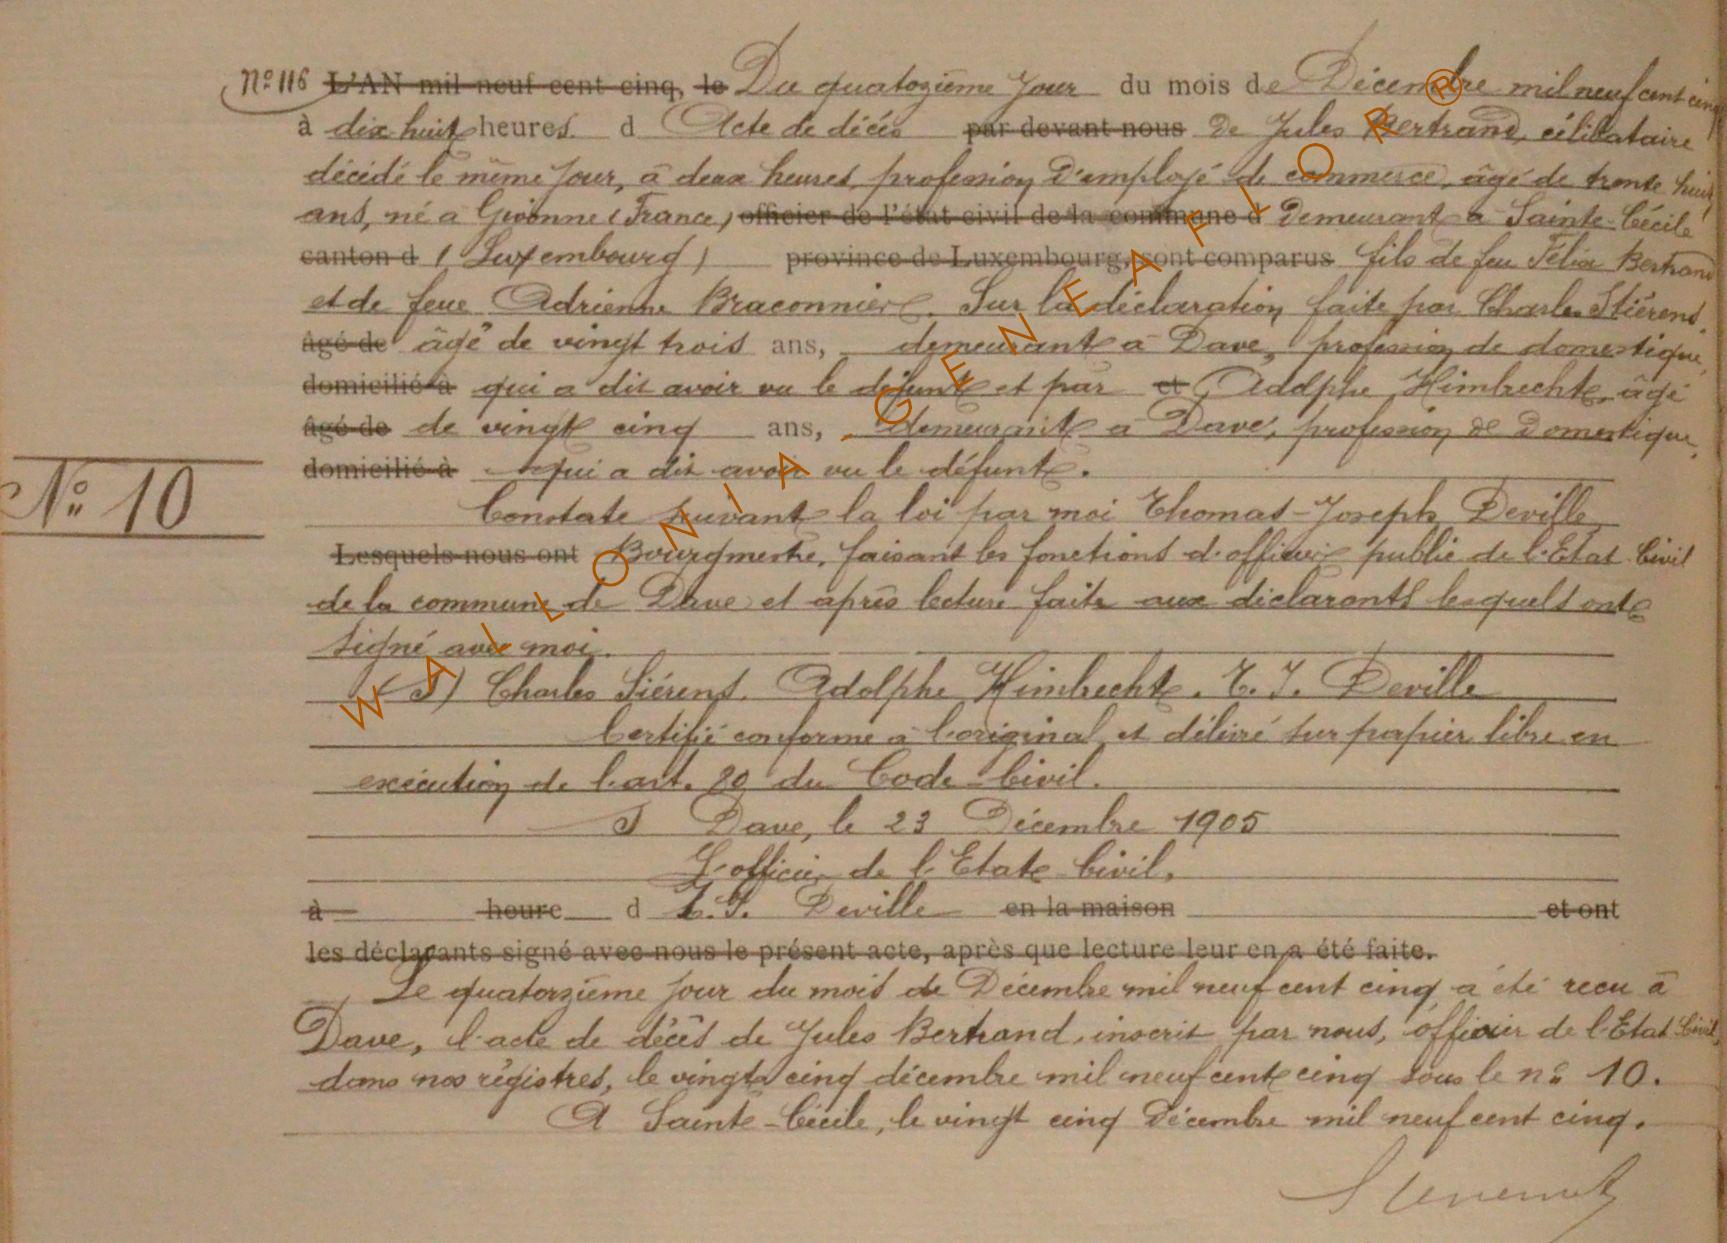 N° 116 L'AN mil neuf cent cinq, le Du quatozième Jour du mois de Décembre mil neuf cent cinq
à dix huit heures. d Acte de décès par devant nous De Jules Bertrand, célibataire
décédé le même Jour, à deux heures, profession D'employé de commerce, âgé de trente huit
ans, né à Givonne (France) officier de l'état civil de la commune d Demeurant à Sainte-Cécile
canton d (Luxembourg) province de Luxembourg, sont comparus fils de feu Félix Bertrand
et de feue Adrienne Braconnier. Sur la déclaration faite par Charles Stiérens,
âgé de âgé de vingt trois ans, demeurant à Dave, profession de domestique,
domicilié à qui a dit avoir vu le défunt et par et Adolphe Himbrecht, âgé
âgé de de vingt cinq ans, demeurant à Dave, profession de Domestique,
domicilié à qui a dit avoir vu le défunt.
N° 10
Constaté suivant la loi par moi Thomas-Joseph Deville
Lesquels nous ont Bourgmestre, faisant les fonctions d'officier public de l'Etat Civil
de la commune de Dave et après lecture faite aux déclarants lesquels ont
signé avec moi.
(S) Charles Siérens. Adolphe Himbrecht. T. J. Deville
Certifié conforme à l'original et délivré sur papier libre en
exécution de l'art. 80 du Code Civil.
Dave, le 23 Décembre 1905
L'officier de l'Etat Civil,
à heure d T. J. Deville en la maison et ont
les déclarants signé avec nous le présent acte, après que lecture leur en a été faite.
Le quatorzième Jour du mois de Décembre mil neuf cent cinq a été recu à
Dave, l'acte de décès de Jules Bertrand, inscrit par nous, officier de l'Etat Civil,
dans nos régistres, le vingt cinq décembre mil neuf cent cinq sous le n° 10.
A Sainte-Cécile, le vingt cinq Décembre mil neuf cent cinq.
WALLONIA GENEAFLOR ®